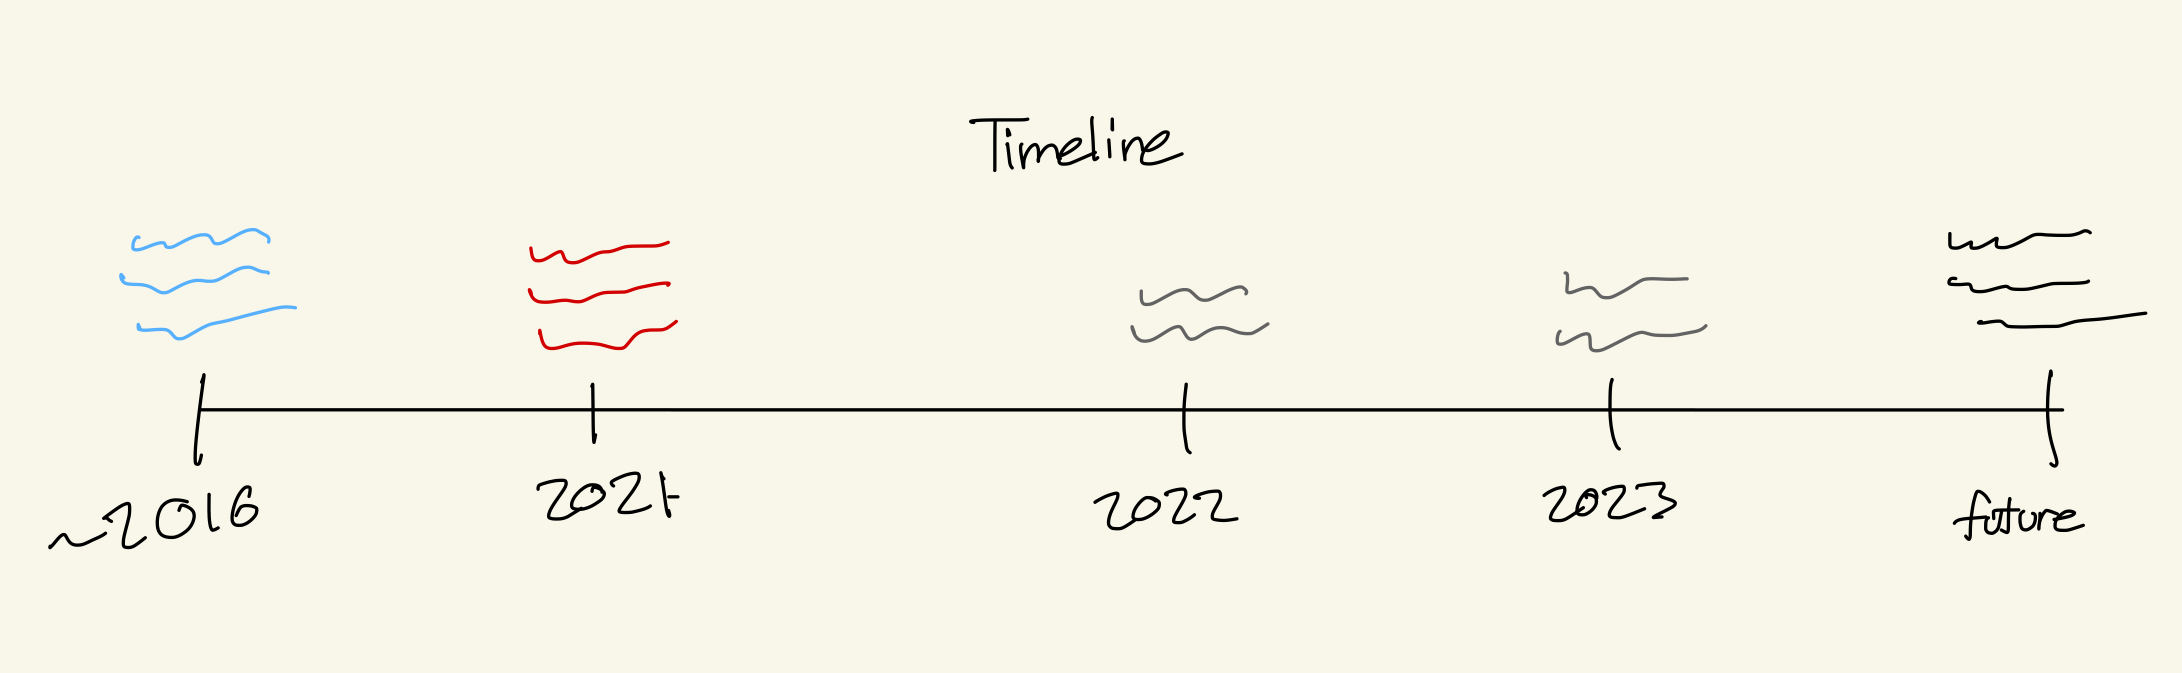 Timeline
~2016 2021 2022 2023 future